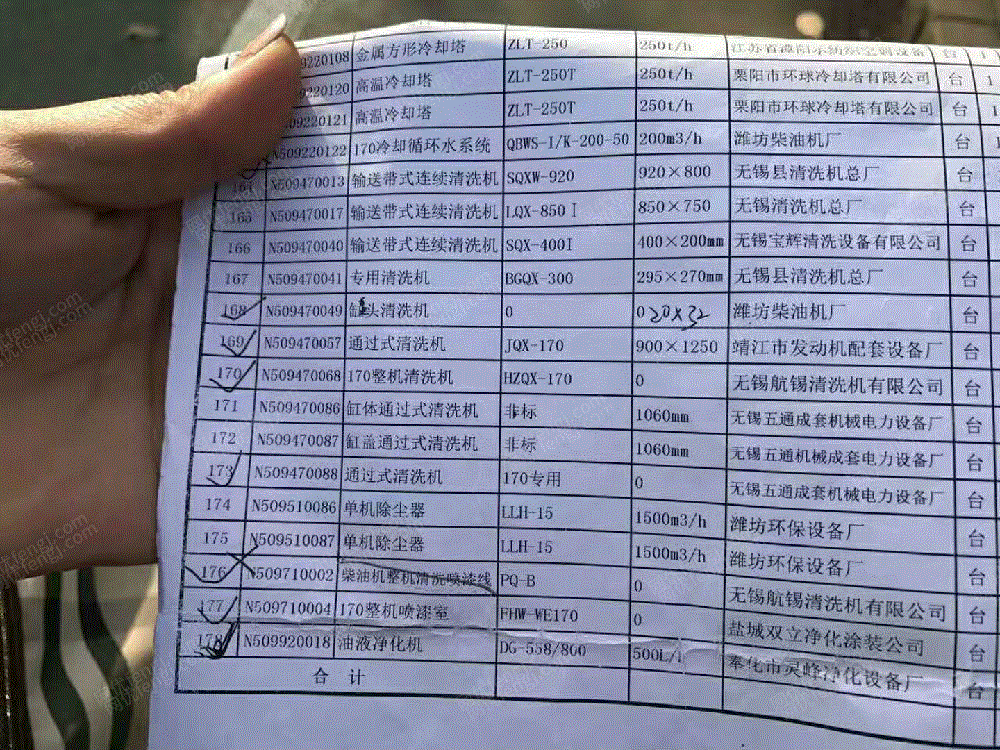 09220108 金属方形冷却塔 ZLT-250 250t/h 台 1
09220120 高温冷却塔 ZLT-250T 250t/h 栗阳市环球冷却塔有限公司 台 1
509220121 高温冷却塔 ZLT-250T 250t/h 栗阳市环球冷却塔有限公司 台 1
N509220122 170冷却循环水系统 QBWS-I/K-200-50 200m3/h 潍坊柴油机厂 台 1
164 N509470013 输送带式连续清洗机 SQXW-920 920×800 无锡县清洗机总厂 台
165 N509470017 输送带式连续清洗机 LQX-850I 850×750 无锡清洗机总厂 台
166 N509470040 输送带式连续清洗机 SQX-400I 400×200mm 无锡宝辉清洗设备有限公司 台
167 N509470041 专用清洗机 BGQX-300 295×270mm 无锡县清洗机总厂 台
168 N509470049 缸头清洗机 0 0 20×32 潍坊柴油机厂 台
169 N509470057 通过式清洗机 JQX-170 900×1250 靖江市发动机配套设备厂 台
170 N509470068 170整机清洗机 HZQX-170 0 无锡航锡清洗机有限公司 台
171 N509470086 缸体通过式清洗机 非标 1060mm 无锡五通成套机械电力设备厂 台
172 N509470087 缸盖通过式清洗机 非标 1060mm 无锡五通机械成套电力设备厂 台
173 N509470088 通过式清洗机 170专用 0 无锡五通成套机械电力设备厂 台
174 N509510086 单机除尘器 LLH-15 1500m3/h 潍坊环保设备厂 台
175 N509510087 单机除尘器 LLH-15 1500m3/h 潍坊环保设备厂 台
176 N509710002 柴油机整机清洗喷漆线 PQ-B 0 无锡航锡清洗机有限公司 台
177 N509710004 170整机喷漆室 FHW-WE170 0 盐城双立净化涂装公司 台
178 N509920018 油液净化机 DG-558/800 500L/ 奉化市灵峰净化设备厂 台
合 计